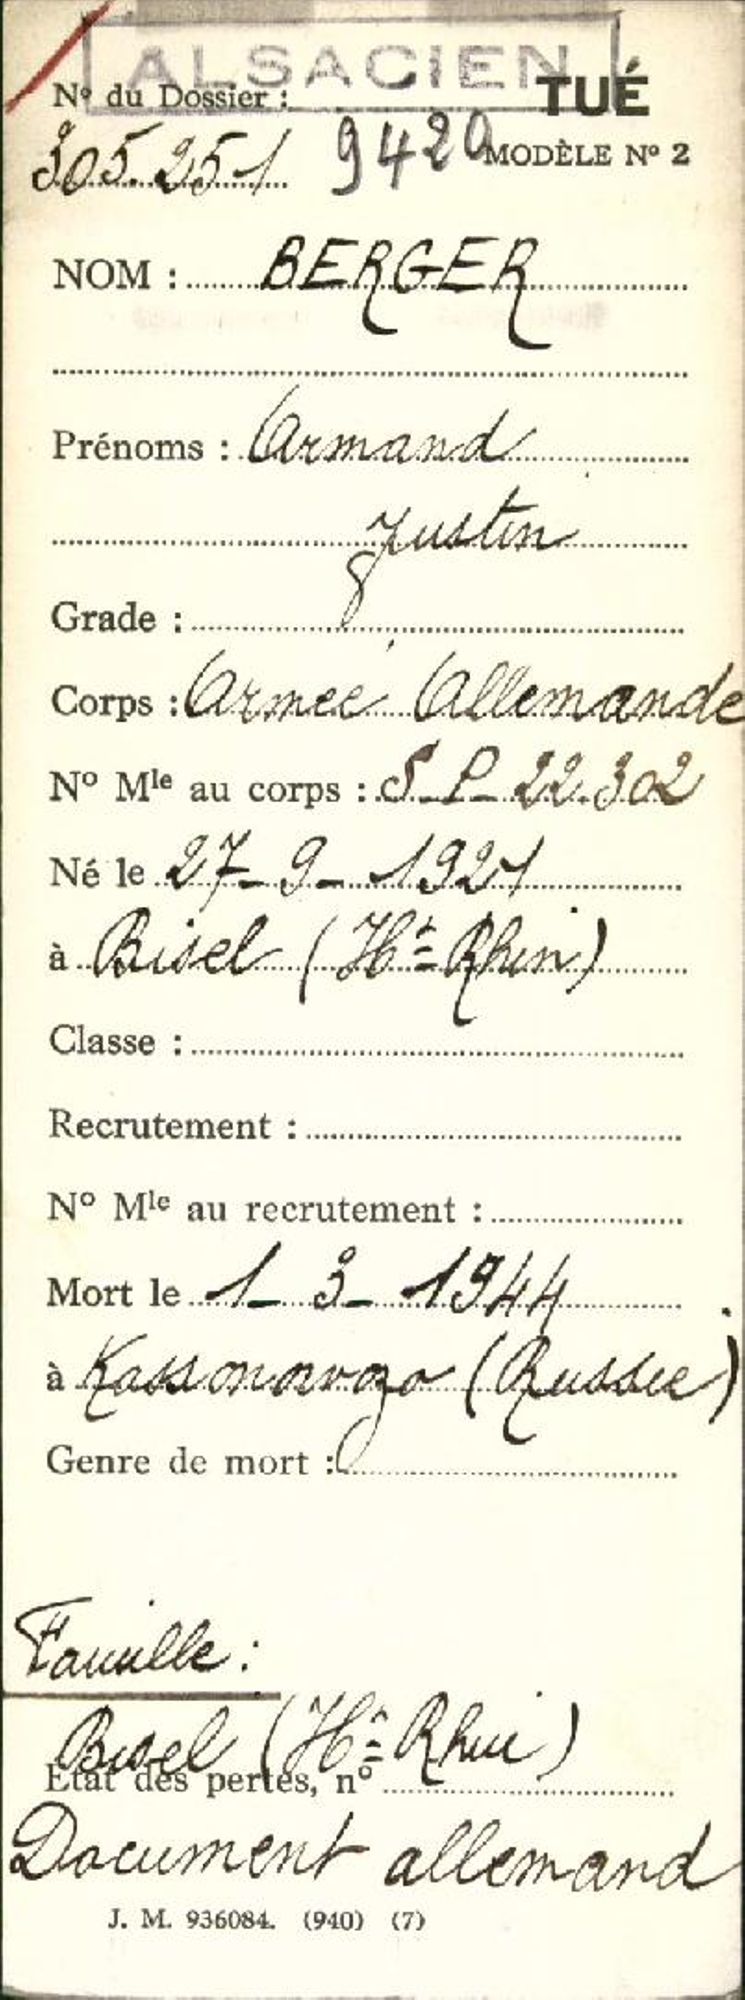 ALSACIEN
TUÉ
Nº du Dossier :
305.251 9420 MODÈLE Nº 2
NOM : BERGER
Prénoms : Armand
Justin
Grade :
Corps : Armée Allemande
Nº Mle au corps : S-P- 22.302
Né le 27-9-1921
à Bisel (Ht-Rhin)
Classe :
Recrutement :
Nº Mle au recrutement :
Mort le 1-3-1944
à (Russie)
Genre de mort :
Famille :
Bisel (Ht-Rhin)
État des pertes, nº
Document allemand
J. M. 936084. (940) (7)